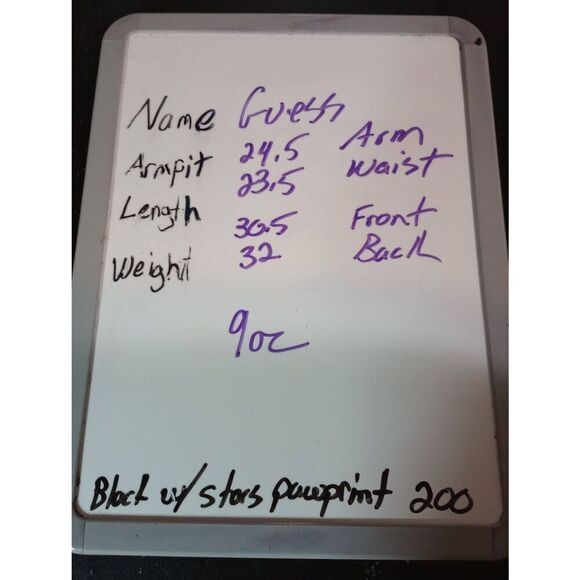 Name Guess
Armpit 24.5 Arm
23.5 Waist
Length 30.5 Front
32 Back
Weight
9oz
Black w/ stars pawprint 200